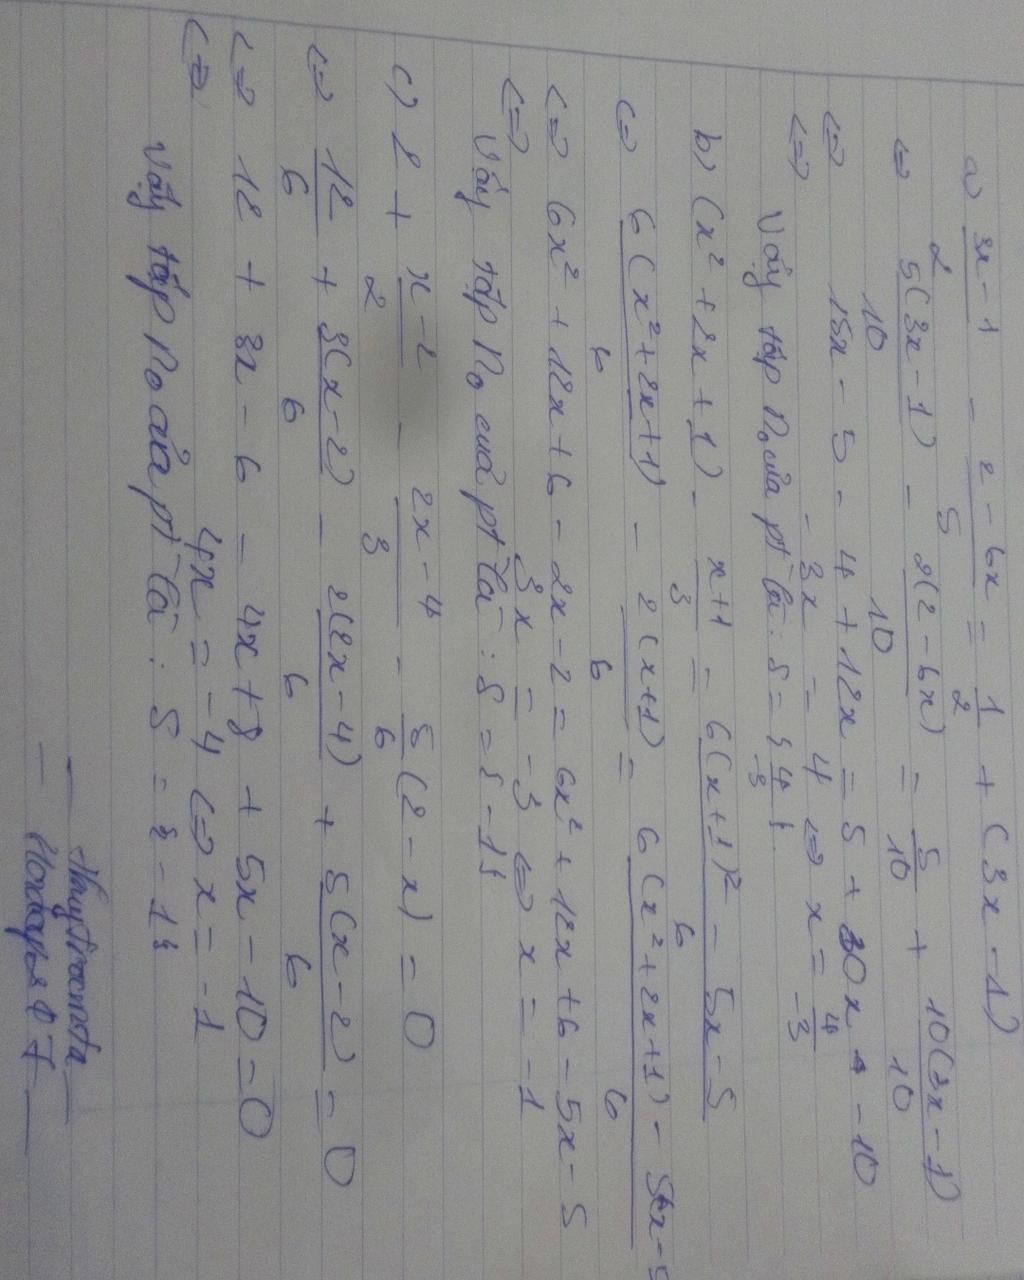 a) 3x-1/2 - 2-6x/5 = 1/2 + (3x-1)
<=> 5(3x-1)/10 - 2(2-6x)/10 = 5/10 + 10(3x-1)/10
<=> 15x - 5 - 4 + 12x = 5 + 30x - 10
<=> -3x = 4 <=> x = 4/-3
Vậy tập no của pt là: S = {4/-3}
b) (x² + 2x + 1) - x+1/3 = 6(x+1)² - 5x-5/6
<=> 6(x²+2x+1)/6 - 2(x+1)/6 = 6(x²+2x+1) - 5x-5/6
<=> 6x² + 12x + 6 - 2x - 2 = 6x² + 12x + 6 - 5x - 5
<=> 3x = -3 <=> x = -1
Vậy tập no của pt là: S = {-1}
c) 2 + x-2/2 - 2x-4/3 - 5/6(2-x) = 0
<=> 12/6 + 3(x-2)/6 - 2(2x-4)/6 + 5(x-2)/6 = 0
<=> 12 + 3x - 6 - 4x + 8 + 5x - 10 = 0
<=> 4x = -4 <=> x = -1
Vậy tập no của pt là: S = {-1}